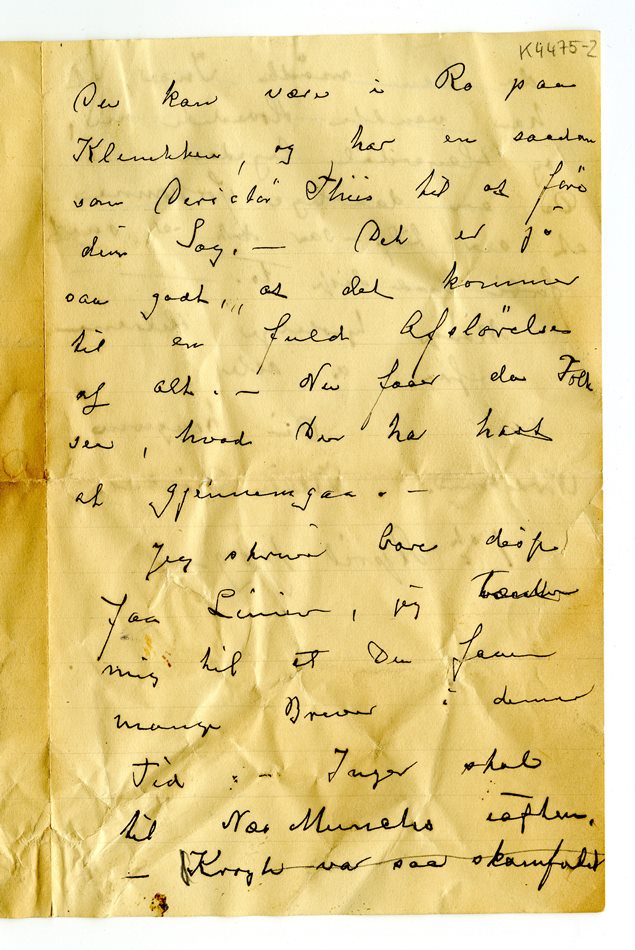 K4475-2
Du kan være i Ro paa
Klinikken, og har en saadan
som Director Thiis til at føre
din Sag. — Det er jo
saa godt, at det kommer
til en fuld Afsløreise
af alt. — Nu faar da Folk
see, hvad Du har havt
at gjennemgaa. —
Jeg skriver bare disse
faa Linier, jeg tænker
mig til at Du faaer
mange Breve i denne
Tid: — Inger skal
til Næs Munchs iaften.
— Krogh var saa skamfuld